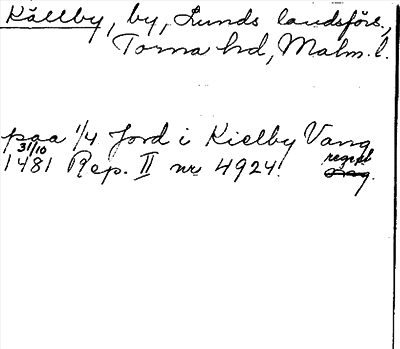 Källby, by, Lunds landsförs.,
Torna hd, Malm. l.
paa 1/4 Jord i Kielby Vang
31/10
1481 Rep. II nr 4924! regest